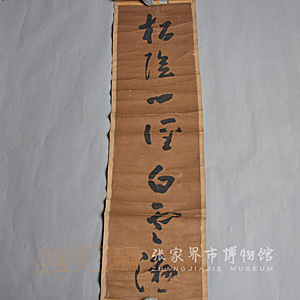 松陰一徑白雲深
张家界市博物馆
ZHANGJIAJIE MUSEUM